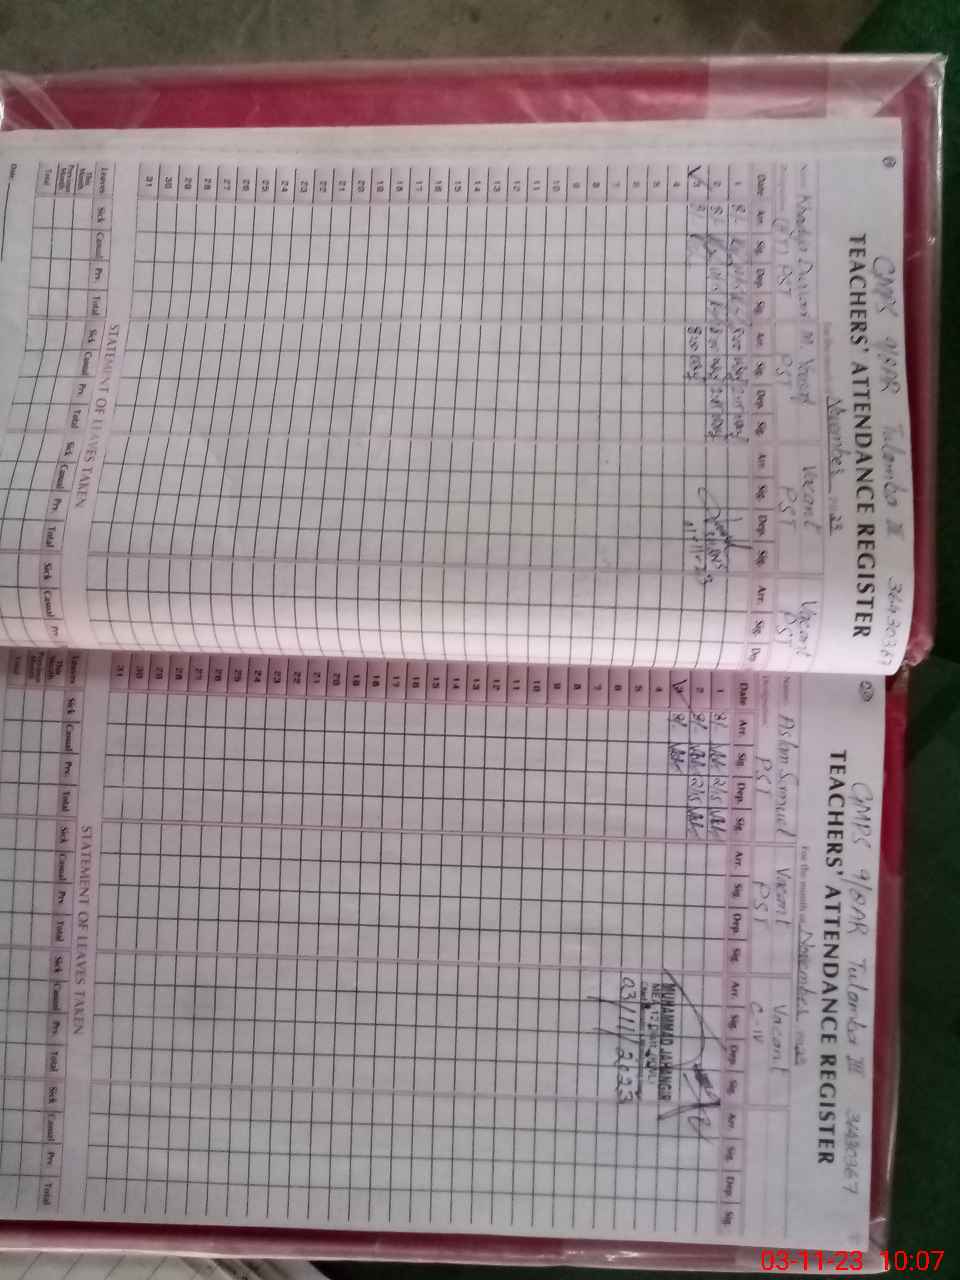 GMPS 9/8AR Tulamba III 36430367
TEACHERS' ATTENDANCE REGISTER
For the month of November 2023
Name Khadija M. Yousaf Vacant Vacant
PST PST PST PST
Date Arr. Sig. Dep. Sig. Arr. Sig. Dep. Sig. Arr. Sig. Dep. Sig. Arr. Sig. Dep.
1 8/- 8:00
2 8/- 8:00
3 8/- 8:00
4
5
6
7
8
9
10
11
12
13
14
15
16
17
18
19
20
21
22
23
24
25
26
27
28
29
30
31
STATEMENT OF LEAVES TAKEN
Leaves Sick Casual Prv. Total Sick Casual Prv. Total Sick Casual Prv. Total Sick Casual Prv.
This Month
Previous Month
Total
Date
GMPS 9/8AR Tulamba III 36430367
TEACHERS' ATTENDANCE REGISTER
For the month of November 2023
Name Aslam Vacant Vacant
Designation PST PST C-IV
Date Arr. Sig. Dep. Sig. Arr. Sig. Dep. Sig. Arr. Sig. Dep. Sig. Arr. Sig. Dep. Sig.
1 8/- 2/15
2 8/- 2/15
3 8/-
4
5
6
7
8
9
10
11
12
13
14
15
16
17
18
19
20
21
22
23
24
25
26
27
28
29
30
31
MUHAMMAD JAHANGIR
MEA
03/11/2023
STATEMENT OF LEAVES TAKEN
Leaves Sick Casual Prv. Total Sick Casual Prv. Total Sick Casual Prv. Total Sick Casual Prv. Total
This Month
Previous Month
Total
03-11-23 10:07